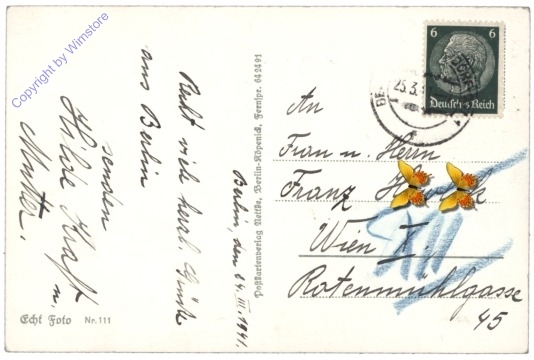 Copyright by Wimstore
Berlin, den 24. III. 1941.
Recht viele herzl. Grüße
aus Berlin
senden
Hilde Kraft
u. Mutter.
Echt Foto Nr. 111
Postkartenverlag Nettke, Berlin-Köpenick, Fernspr. 642491
6 6
Deutsches Reich
25.3.
An
Frau u. Herrn
Franz
Wien X.
Rotenmühlgasse
45